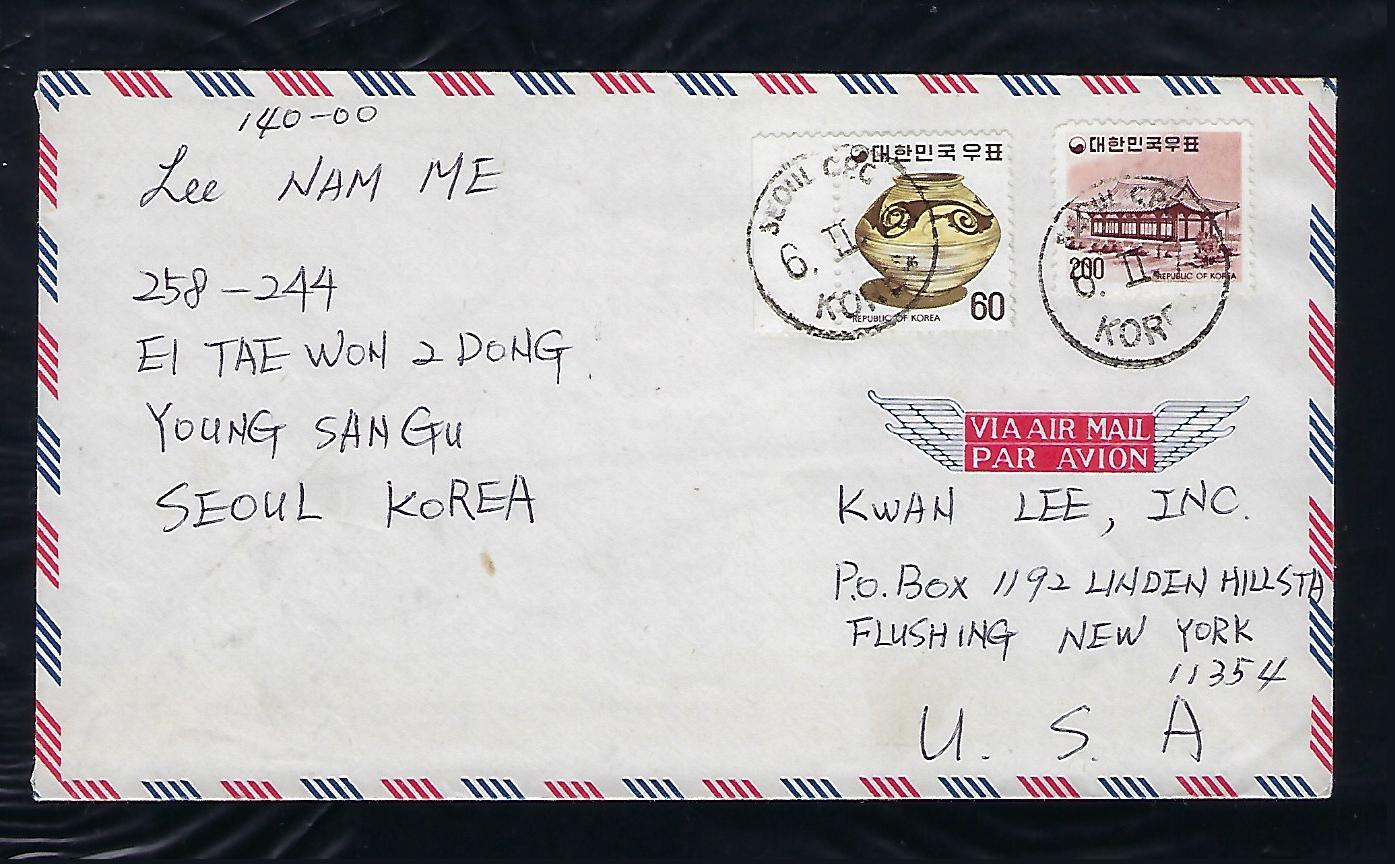 140-00
Lee NAM ME
258-244
EI TAE WON 2 DONG
YOUNG SAN GU
SEOUL KOREA
대한민국우표
60
REPUBLIC OF KOREA
SEOUL CPC
6. II
KOREA
대한민국우표
200
REPUBLIC OF KOREA
6. II
VIA AIR MAIL
PAR AVION
KWAN LEE, INC.
P.O. BOX 1192 LINDEN HILL STA
FLUSHING NEW YORK
11354
U. S. A